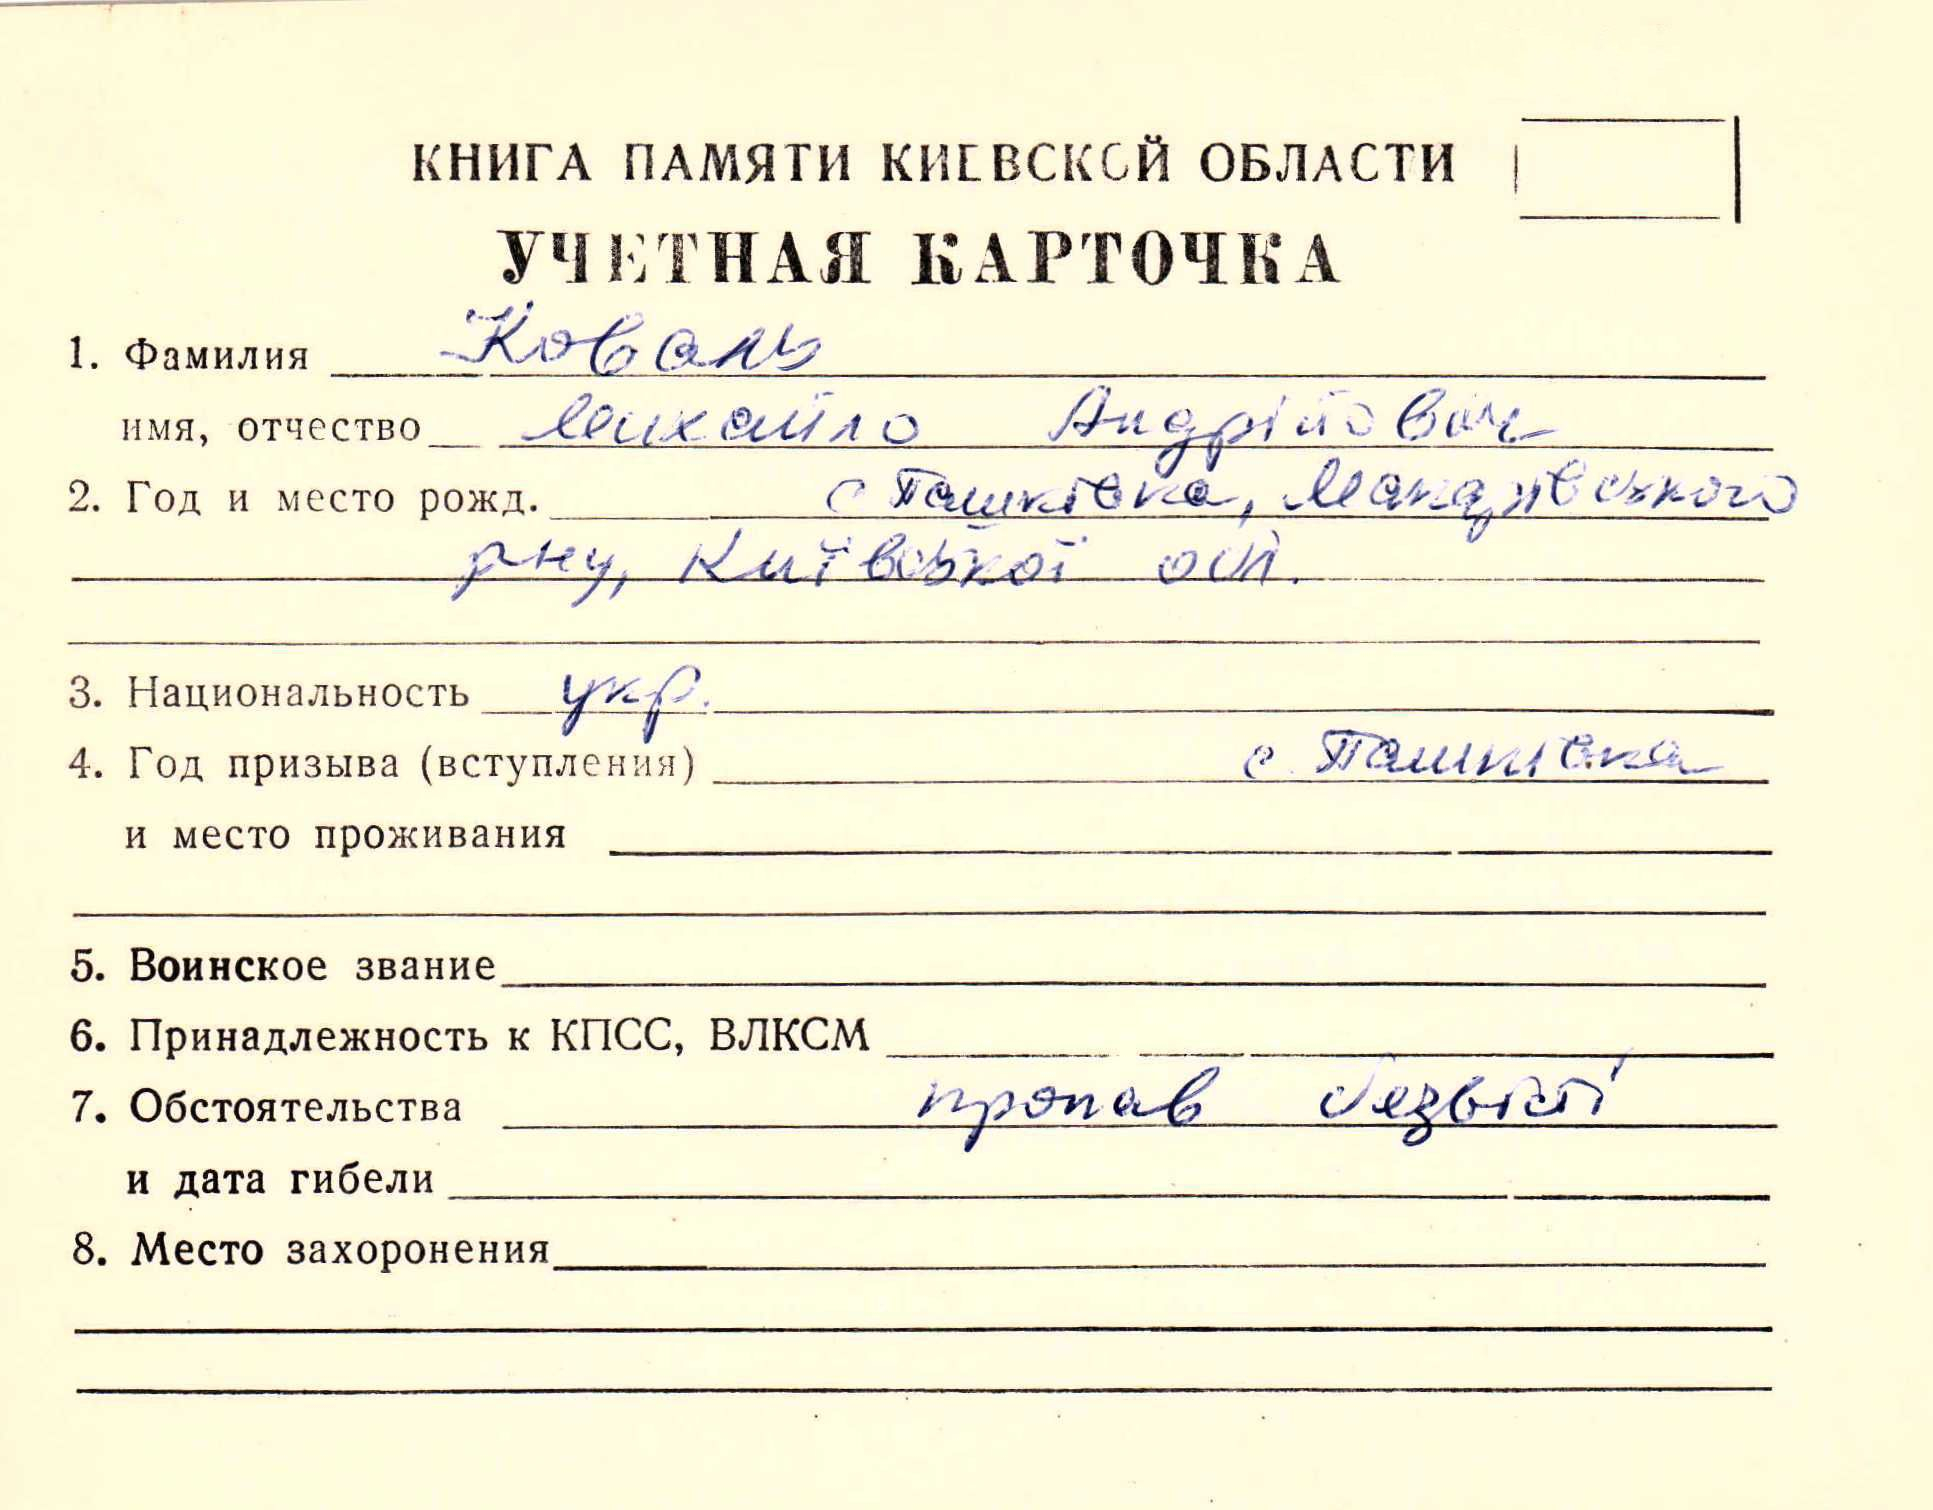 КНИГА ПАМЯТИ КИЕВСКОЙ ОБЛАСТИ
УЧЕТНАЯ КАРТОЧКА
1. Фамилия Коваль
имя, отчество Михайло Андрійович
2. Год и место рожд. с Пашківка, Макарівського
рну, Київської обл.
3. Национальность укр.
4. Год призыва (вступления) с. Пашківка
и место проживания
5. Воинское звание
6. Принадлежность к КПСС, ВЛКСМ
7. Обстоятельства пропав безвісті
и дата гибели
8. Место захоронения